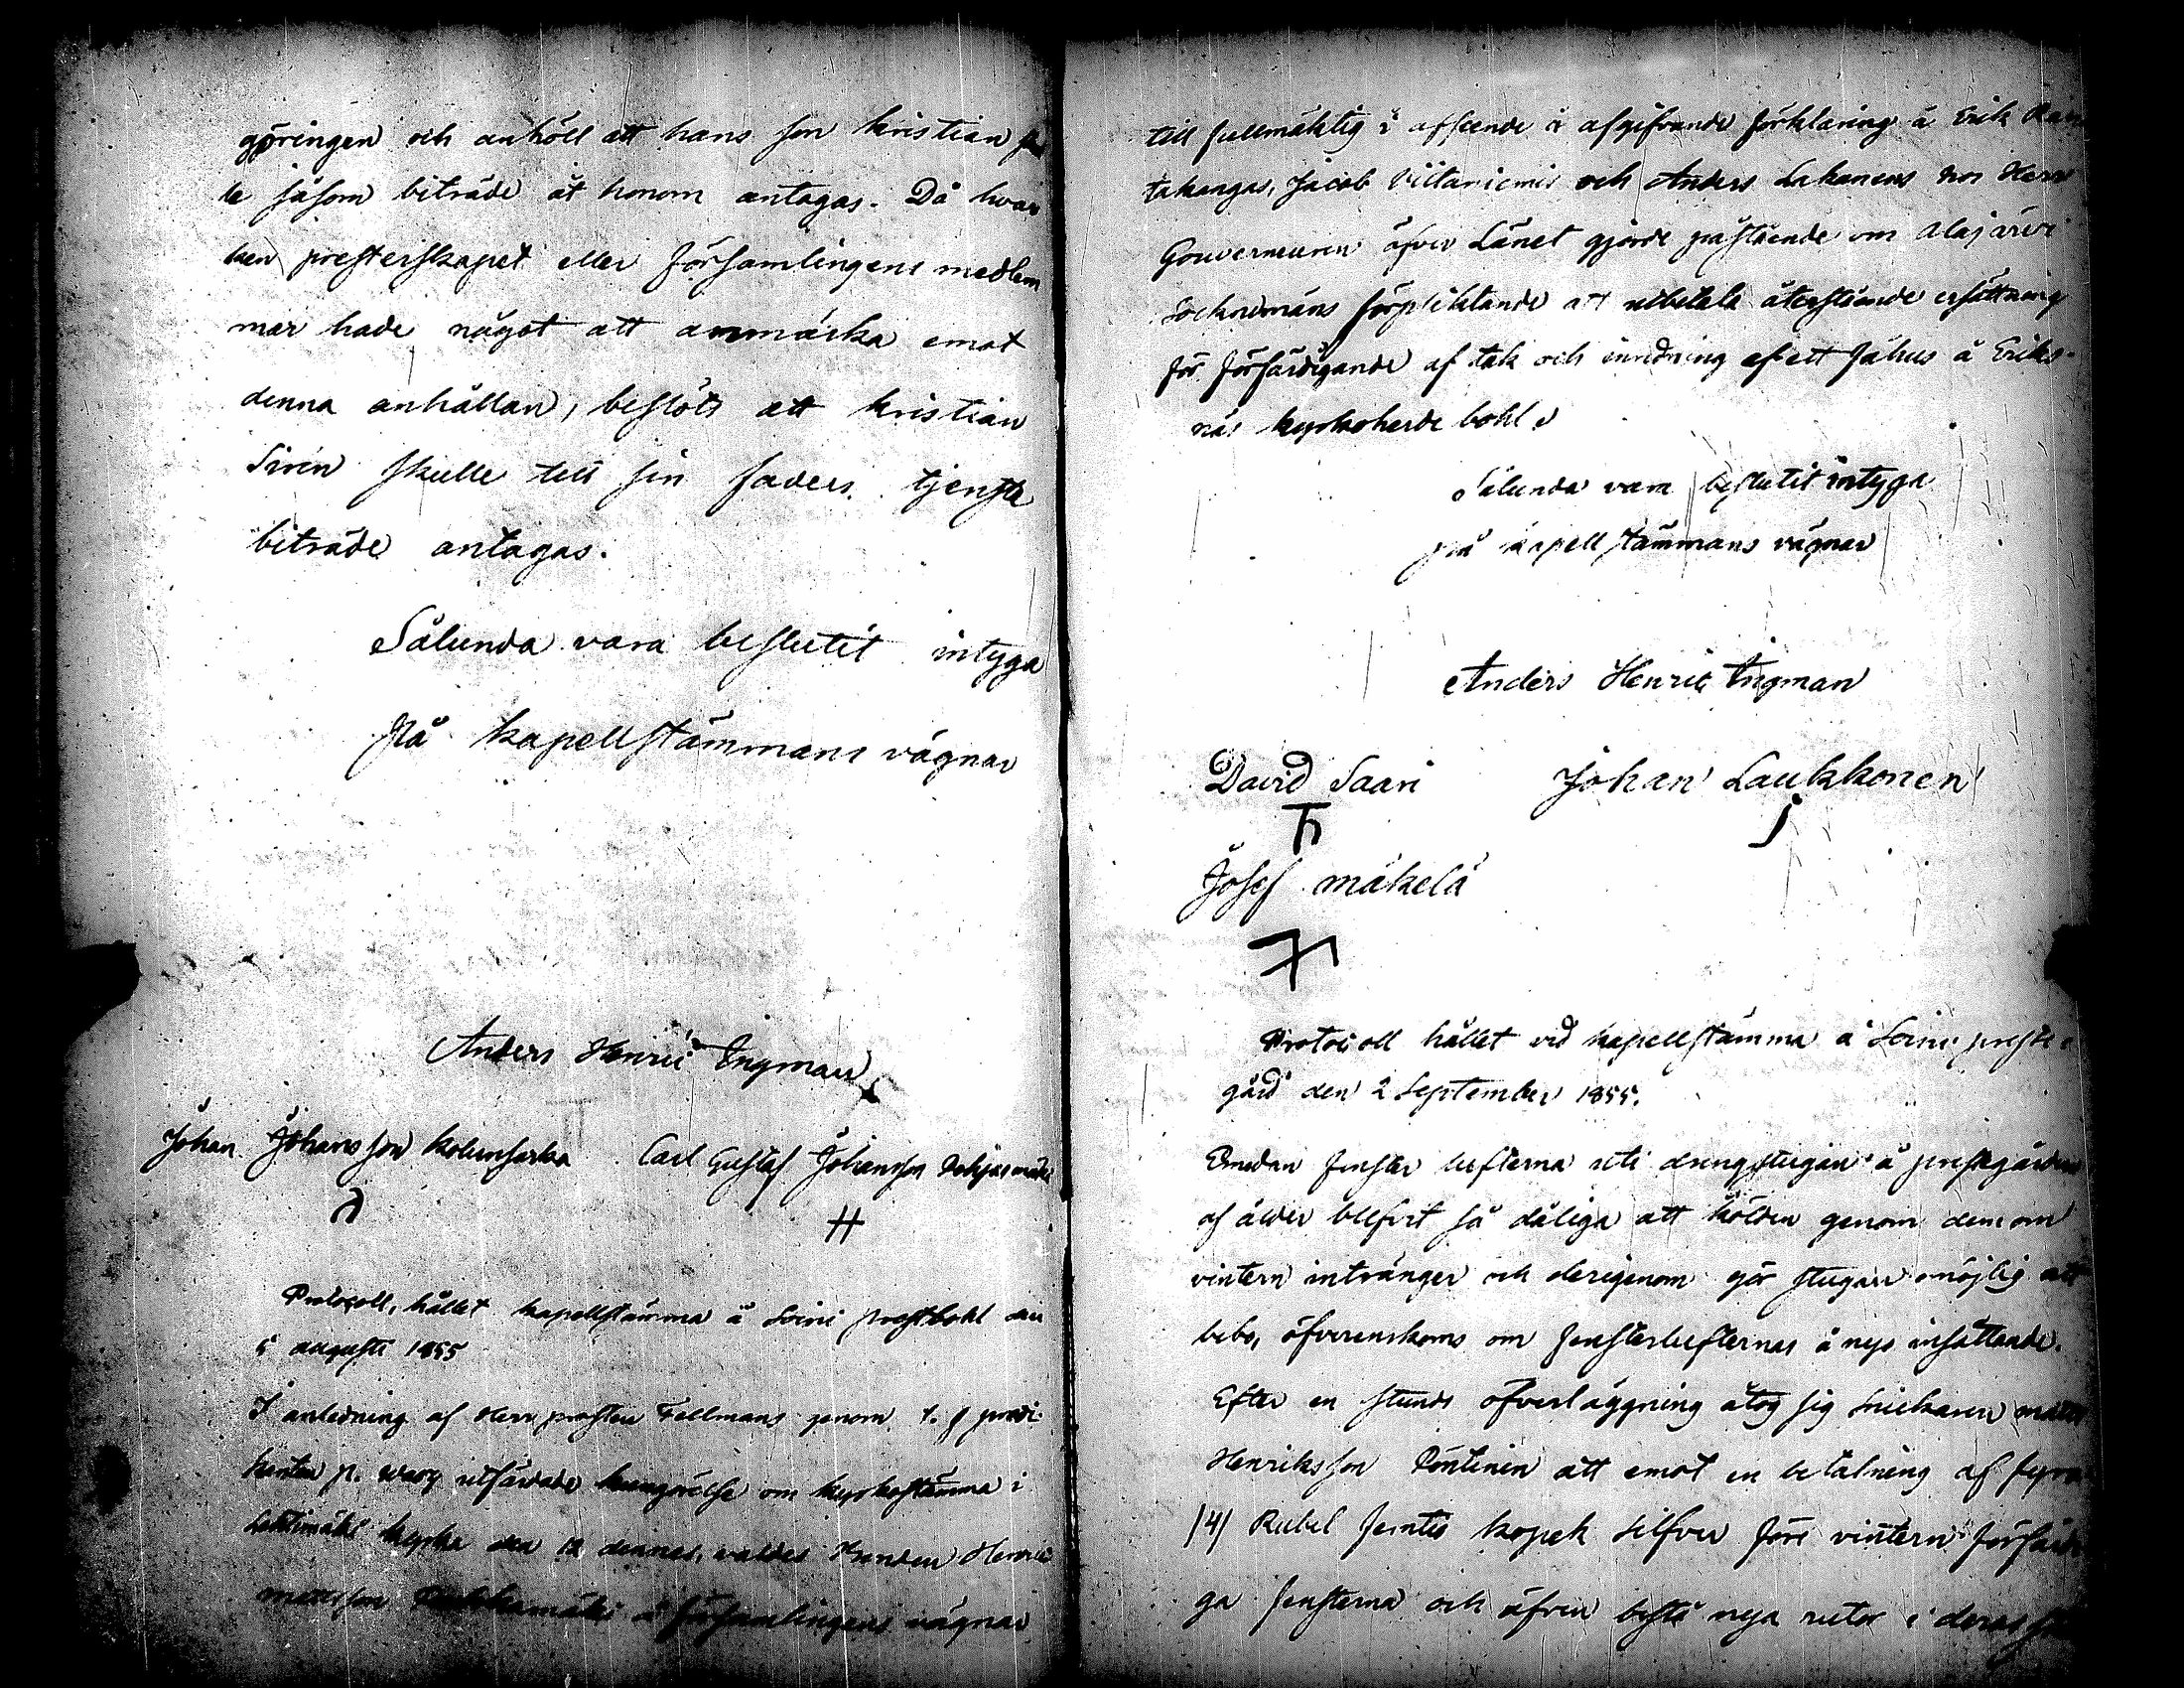 göringen och anhöll att hans son Kristian
le såsom biträde åt honom antagas. Då hvar
ken presterskapet eller församlingens medlem
mar hade något att anmärka emot
denna anhållan, beslöts att Kristian
Sirén skulle till sin faders tjenste
biträde antagas.
Sålunda vara beslutit intyga
På kapellstämmans vägnar
Anders Henric Ingman
Johan Johansson Kolunsarka Carl Gustaf Johansson Pohjasmäki
Protocoll, hållet kapellstämma å Soini prestbohl den
5 augusti 1855
I anledning af Herr prosten Fellmans genom t. f. predi-
kanten utfärdade kungörelse om kyrkostämma i
Lehtimäki kyrka den 12 dennes, valdes Henric
Mattsson å församlingens vägnar
till fullmäktig i afseende å afgifvande förklaring å Erik
takangas, Jacob Viitaniemis och Anders Lakanens hos Herr
Gouverneuren öfver Länet gjorde påstående om Alajärvi
Socknemäns förpliktande att utbetala återstående ersättning
för förfärdigande af tak och inredning af ett fähus å Eriks-
näs kyrkoherde bohl.
Sålunda vara beslutit intyga
på kapellstämmans vägnar
Anders Henric Ingman
David Saari Johan Laukkonen
Josef Mäkelä
Protocoll hållet vid kapellstämma å Soini preste
gård den 2 September 1855.
Emedan fenster lufterna uti drengstugan å prestgården
af ålder blifvit så dåliga att kölden genom dem om
vintern intränger och derigenom gör stugan omöjlig att
bebo, öfverenskoms om fensterlufternas å nyo insättande.
Efter en stunds öfverläggning åtog sig snickaren Matts
Henriksson Pöntinen att emot en betalning af fyra
/4/ Rubel femtio kopek silfver före vintern förfärdi
ga fensterna och äfven bestå nya rutor i deras